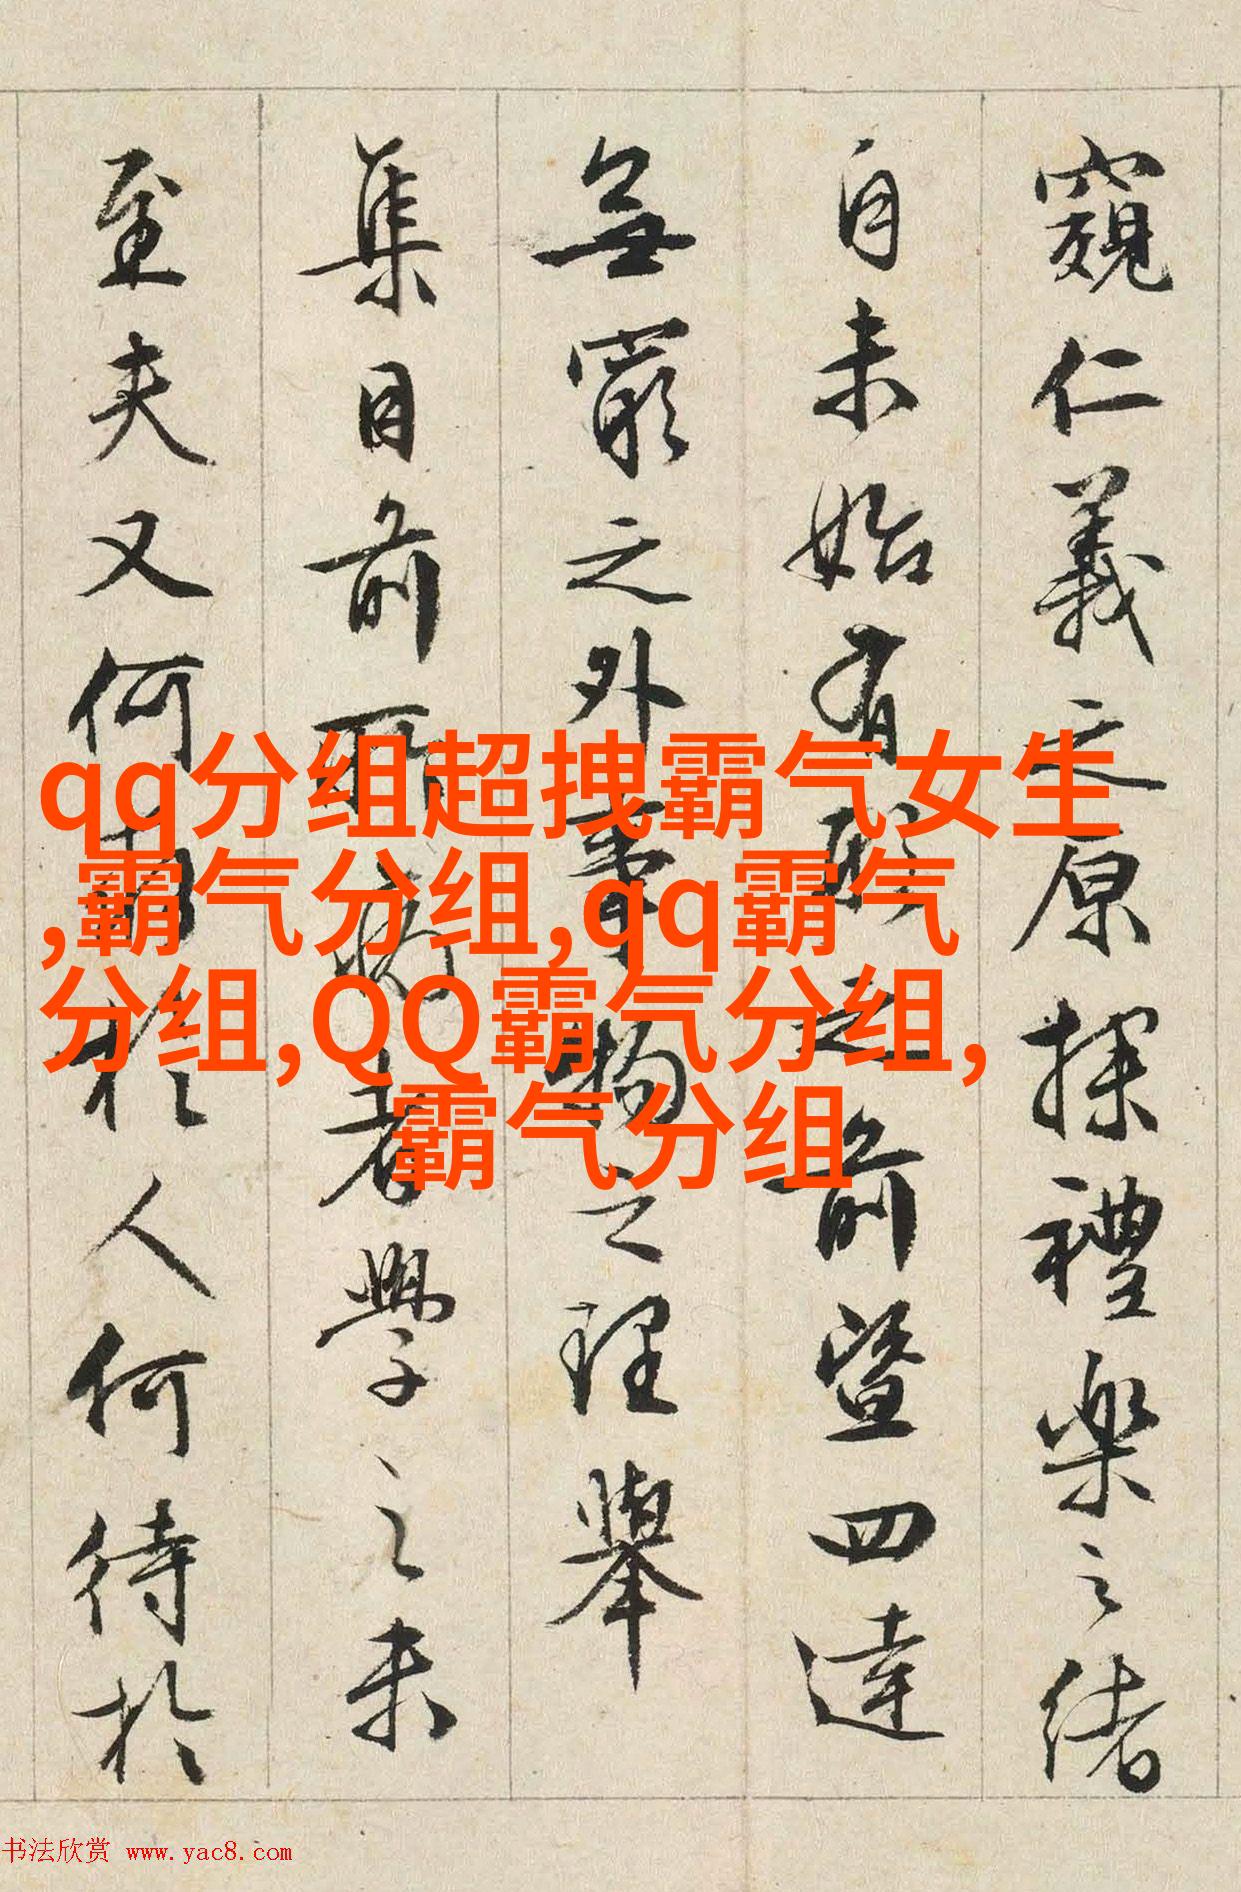 窺仁義之原探禮樂之緒
自未始有形之前暨四達
無窮之外事物之理舉
集目前所病者學之未
至夫又何於人何待於
qq分组超拽霸气女生
,霸气分组,qq霸气
分组,QQ霸气分组,
霸气分组
书法欣赏 www.yac8.com